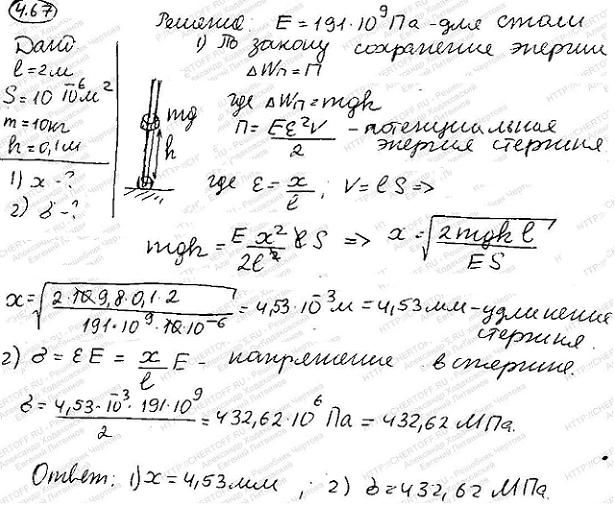 4.67
Дано
l=2м
S=10·10⁻⁶м²
m=10кг
h=0,1м
1) x-?
2) σ-?
mg
h
Решение: E=191·10⁹Па-для стали
1) По закону сохранение энергии
ΔWп=П
где ΔWп=mgh
П=Eε²V/2 - потенциальная энергия стержня
где ε=x/l; V=lS =>
mgh=E x²/2l² lS => x=√(2mghl/ES)
x=√(2·10·9,8·0,1·2/191·10⁹·10·10⁻⁶)=4,53·10⁻³м=4,53мм-удлинение стержня.
2) σ=εE=x/l E - напряжение в стержне.
σ=4,53·10⁻³·191·10⁹/2=432,62·10⁶Па=432,62МПа.
Ответ: 1) x=4,53мм; 2) σ=432,62МПа.